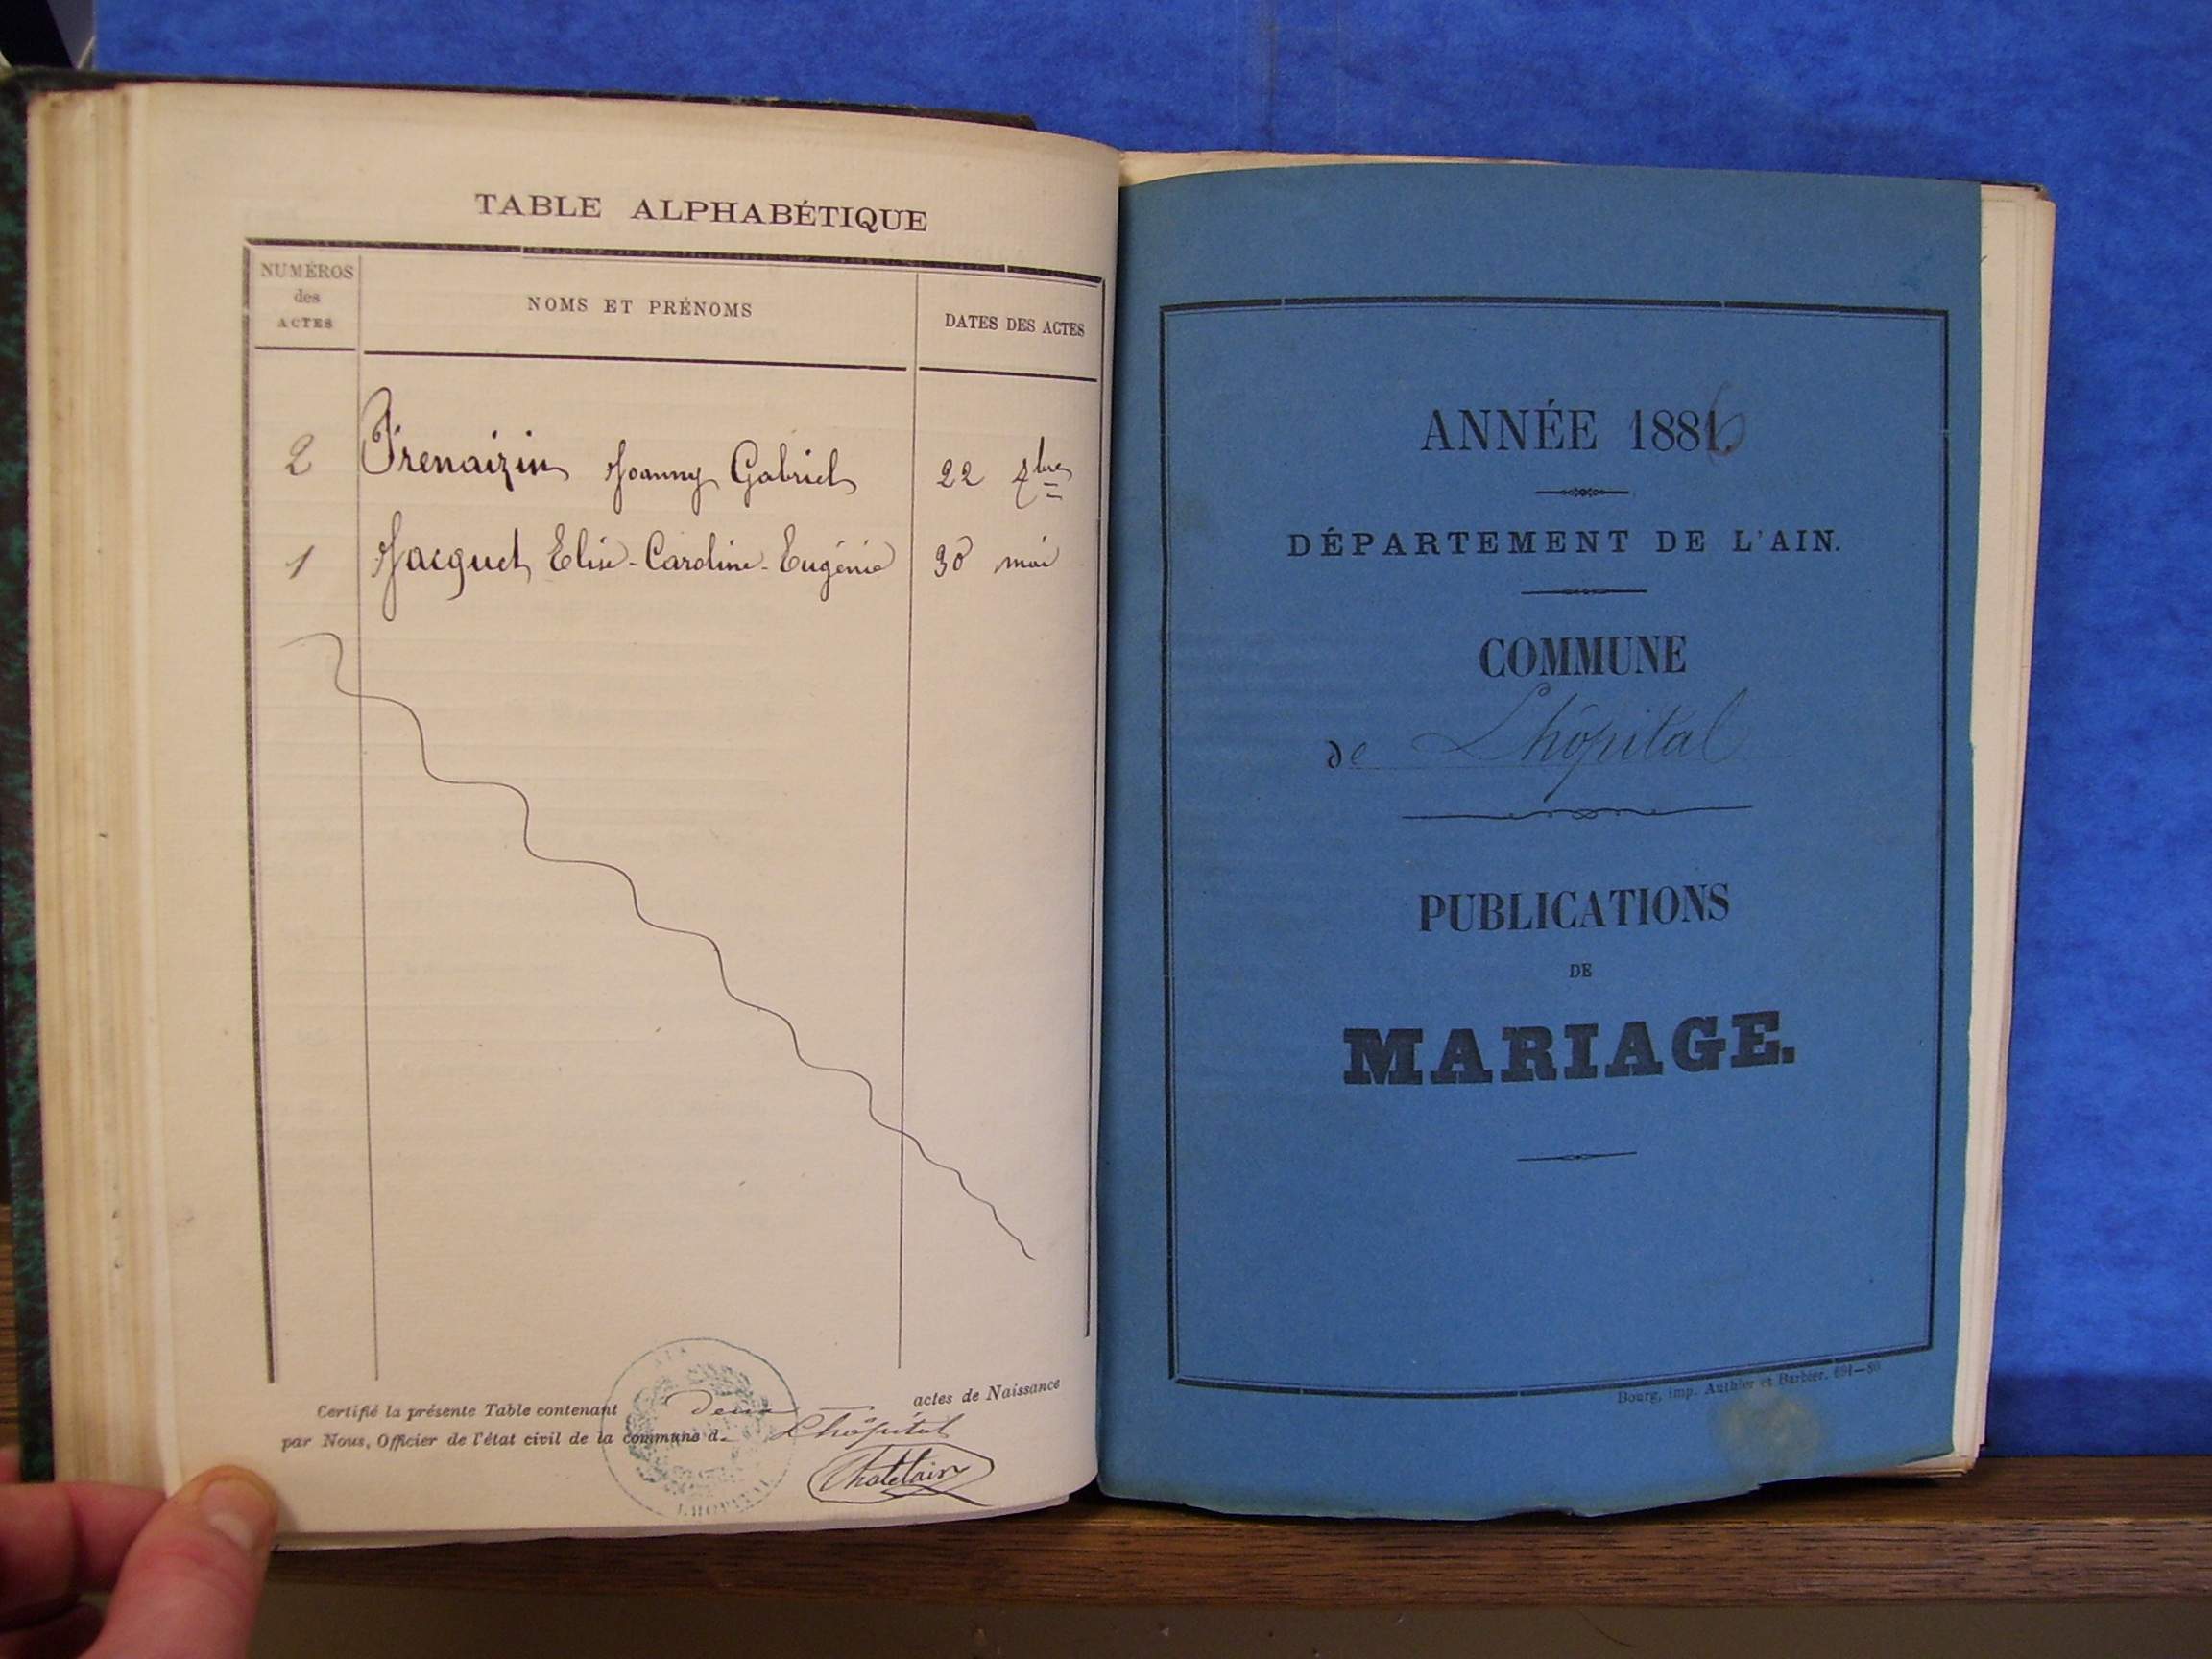 TABLE ALPHABÉTIQUE
NUMÉROS
des
ACTES
NOMS ET PRÉNOMS
DATES DES ACTES
2 Joanny Gabriel 22
1 Jacquet Elise-Caroline-Eugénie 30 mai
Certifié la présente Table contenant deux actes de Naissance
par Nous, Officier de l'état civil de la commune d Lhôpital
Chatelain
ANNÉE 1886
DÉPARTEMENT DE L'AIN.
COMMUNE
de Lhôpital
PUBLICATIONS
DE
MARIAGE.
Bourg, imp. Authier et Barbier.